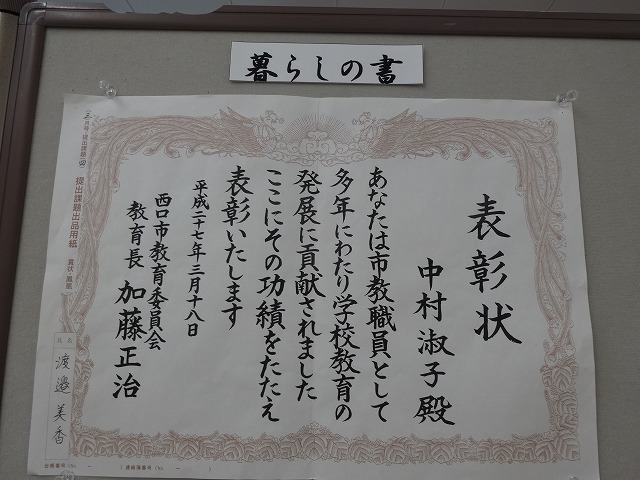 暮らしの書
表彰状
中村淑子殿
あなたは市教職員として
多年にわたり学校教育の
発展に貢献されました
ここにその功績をたたえ
表彰いたします
平成二十七年三月十八日
西口市教育委員会
教育長 加藤正治
提出課題出品用紙 賞状・鳳凰
氏名
渡邉美香